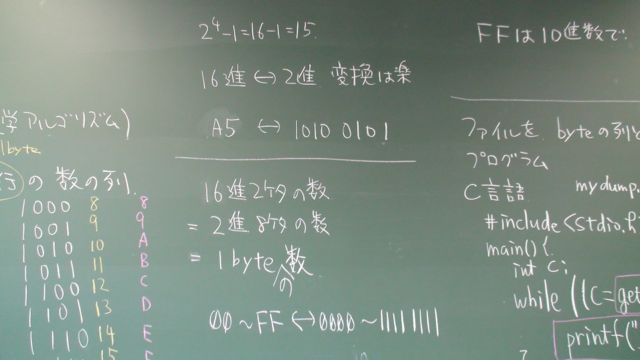 学アルゴリズム)
1byte
行の数の列
1000 8 8
1001 9 9
1010 10 A
1011 11 B
1100 12 C
1101 13 D
1110 14 E
15
2⁴-1=16-1=15.
16進↔2進 変換は楽
A5 ↔ 1010 0101
16進2ケタの数
= 2進8ケタの数
= 1byteの数
00~FF↔0000~11111111
FFは10進数で
ファイルを byteの列と
プログラム
C言語 mydump.
#include <stdio.h
main(){
int c;
while ((c=get
printf("